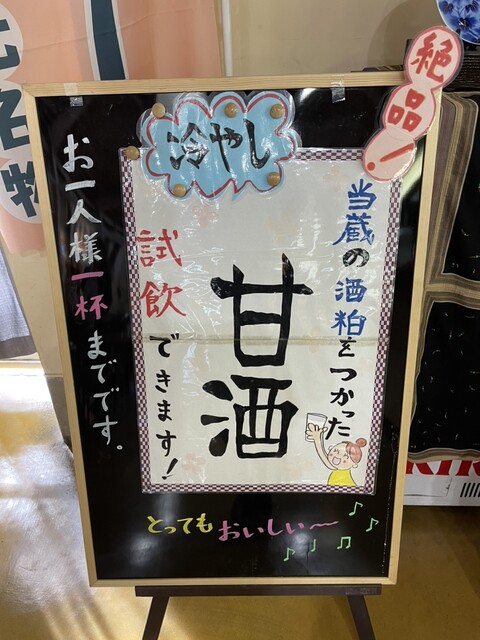 絶品!
冷やし
当蔵の酒粕をつかった
甘酒
試飲できます!
お一人様一杯までです。
とってもおいしい〜
名物